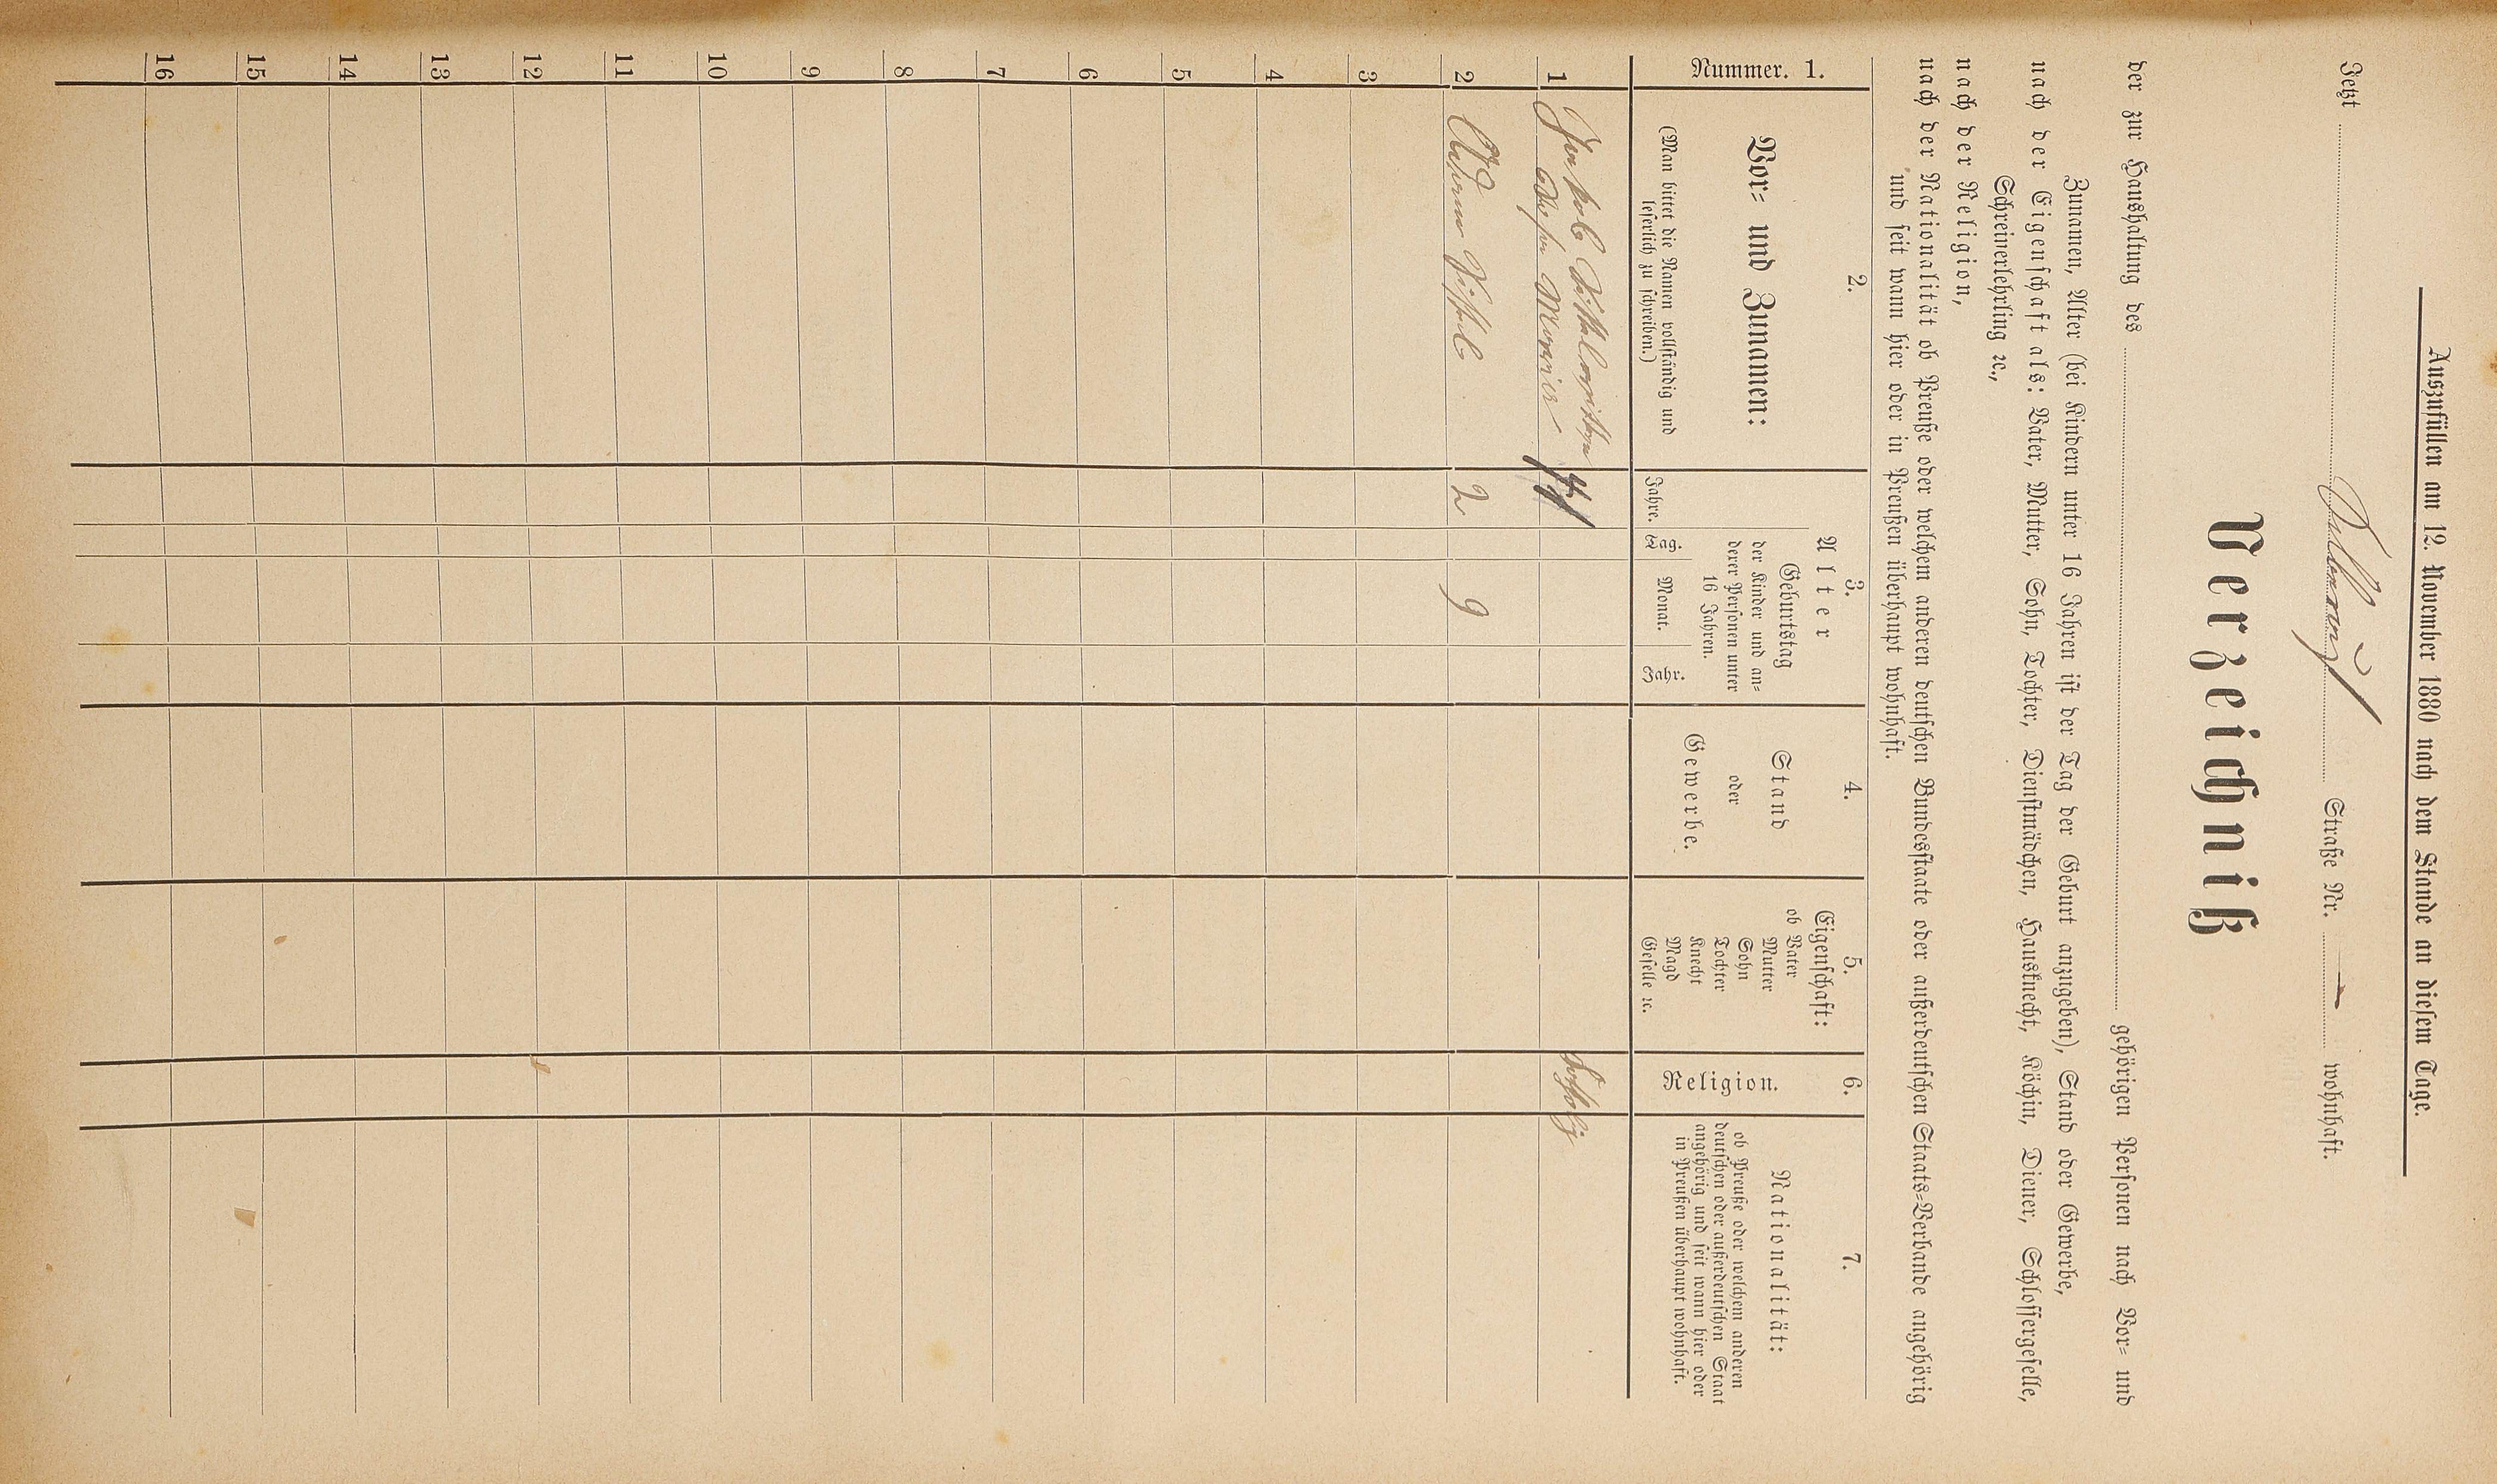 Auszufüllen am 12. November 1880 nach dem Stande an diesem Tage.
Jetzt Straße Nr. wohnhaft.
Verzeichniß
der zur Haushaltung des gehörigen Personen nach Vor- und
Zunamen, Alter (bei Kindern unter 16 Jahren ist der Tag der Geburt anzugeben), Stand oder Gewerbe,
nach der Eigenschaft als: Vater, Mutter, Sohn, Tochter, Dienstmädchen, Hausknecht, Köchin, Diener, Schlossergeselle,
Schreinerlehrling ꝛc.,
nach der Religion,
nach der Nationalität ob Preuße oder welchem anderen deutschen Bundesstaate oder außerdeutschen Staats-Verbande angehörig
und seit wann hier oder in Preußen überhaupt wohnhaft.
Nummer. 1.
2.
Vor- und Zunamen:
(Man bittet die Namen vollständig und
leserlich zu schreiben.)
3.
Alter
Jahre.
Geburtstag
der Kinder und an-
derer Personen unter
16 Jahren.
Tag.
Monat.
Jahr.
4.
Stand
oder
Gewerbe.
5.
Eigenschaft:
ob Vater
Mutter
Sohn
Tochter
Knecht
Magd
Geselle ꝛc.
6.
Religion.
7.
Nationalität:
ob Preuße oder welchem anderen
deutschen oder außerdeutschen Staat
angehörig und seit wann hier oder
in Preußen überhaupt wohnhaft.
1
2 2 9
3
4
5
6
7
8
9
10
11
12
13
14
15
16